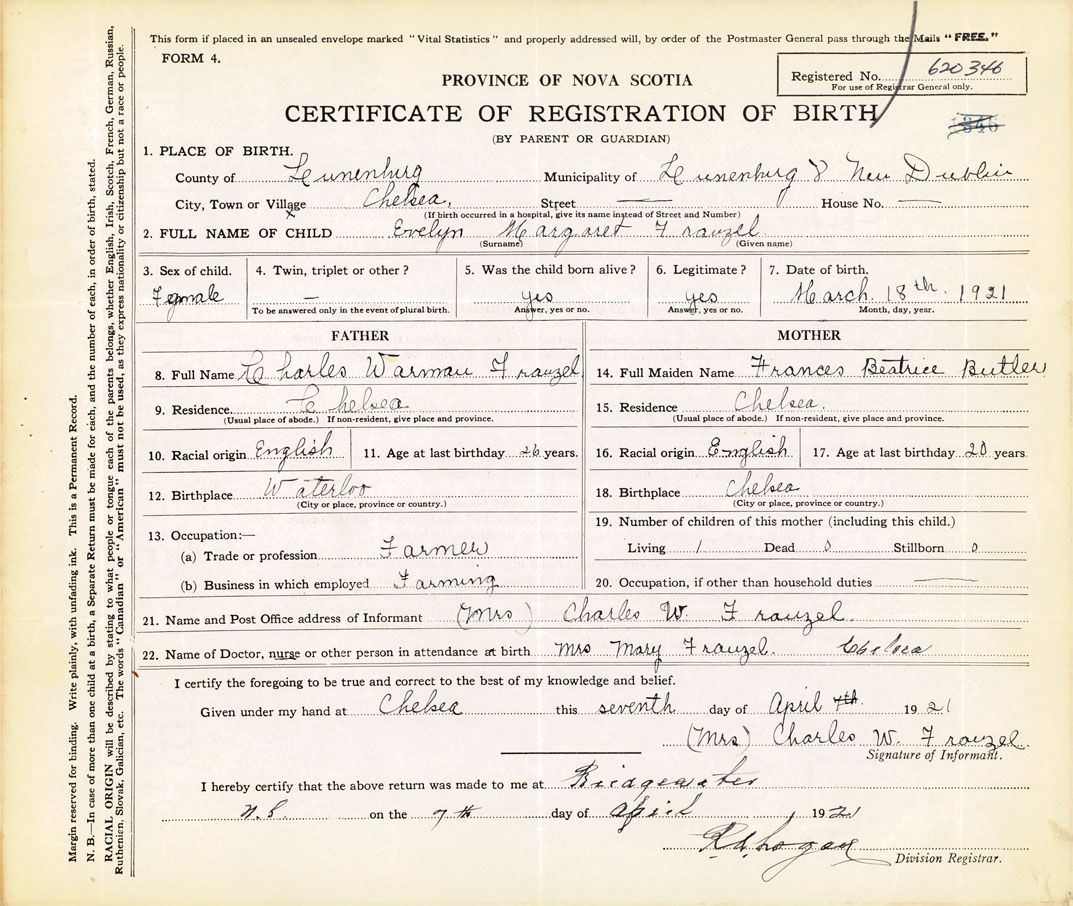 This form if placed in an unsealed envelope marked "Vital Statistics" and properly addressed will, by order of the Postmaster General pass through the Mails "FREE."
FORM 4.
PROVINCE OF NOVA SCOTIA
Registered No. 620346
For use of Registrar General only.
CERTIFICATE OF REGISTRATION OF BIRTH
(BY PARENT OR GUARDIAN)
1. PLACE OF BIRTH.
County of Lunenburg Municipality of Lunenburg & New Dublin
City, Town or Village Chelsea, Street — House No. —
(If birth occurred in a hospital, give its name instead of Street and Number)
2. FULL NAME OF CHILD Evelyn Margaret Frauzel
(Surname) (Given name)
3. Sex of child. 4. Twin, triplet or other? 5. Was the child born alive? 6. Legitimate? 7. Date of birth.
Female — yes yes March. 18th. 1921
To be answered only in the event of plural birth. Answer, yes or no. Answer, yes or no. Month, day, year.
FATHER
8. Full Name Charles Warman Frauzel
9. Residence. Chelsea
(Usual place of abode.) If non-resident, give place and province.
10. Racial origin English 11. Age at last birthday 26 years.
12. Birthplace Waterloo
(City or place, province or country.)
13. Occupation:—
(a) Trade or profession Farmer
(b) Business in which employed Farming
MOTHER
14. Full Maiden Name Frances Beatrice Butler
15. Residence Chelsea.
(Usual place of abode.) If non-resident, give place and province.
16. Racial origin English 17. Age at last birthday 20 years.
18. Birthplace Chelsea
(City or place, province or country.)
19. Number of children of this mother (including this child.)
Living 1 Dead 0 Stillborn 0
20. Occupation, if other than household duties —
21. Name and Post Office address of Informant (Mrs) Charles W. Frauzel.
22. Name of Doctor, nurse or other person in attendance at birth Mrs Mary Frauzel. Chelsea
I certify the foregoing to be true and correct to the best of my knowledge and belief.
Given under my hand at Chelsea this seventh day of April 7th. 1921
(Mrs) Charles W. Frauzel.
Signature of Informant.
I hereby certify that the above return was made to me at Bridgewater
N.S. on the 7th day of April 1921
Division Registrar.
Margin reserved for binding. Write plainly, with unfading ink. This is a Permanent Record.
N. B.—In case of more than one child at a birth, a Separate Return must be made for each, and the number of each, in order of birth, stated.
RACIAL ORIGIN will be described by stating to what people or tongue each of the parents belongs, whether English, Irish, Scotch, French, German, Russian,
Ruthenien, Slovak, Galician, etc. The words "Canadian" or "American" must not be used, as they express nationality or citizenship but not a race or people.